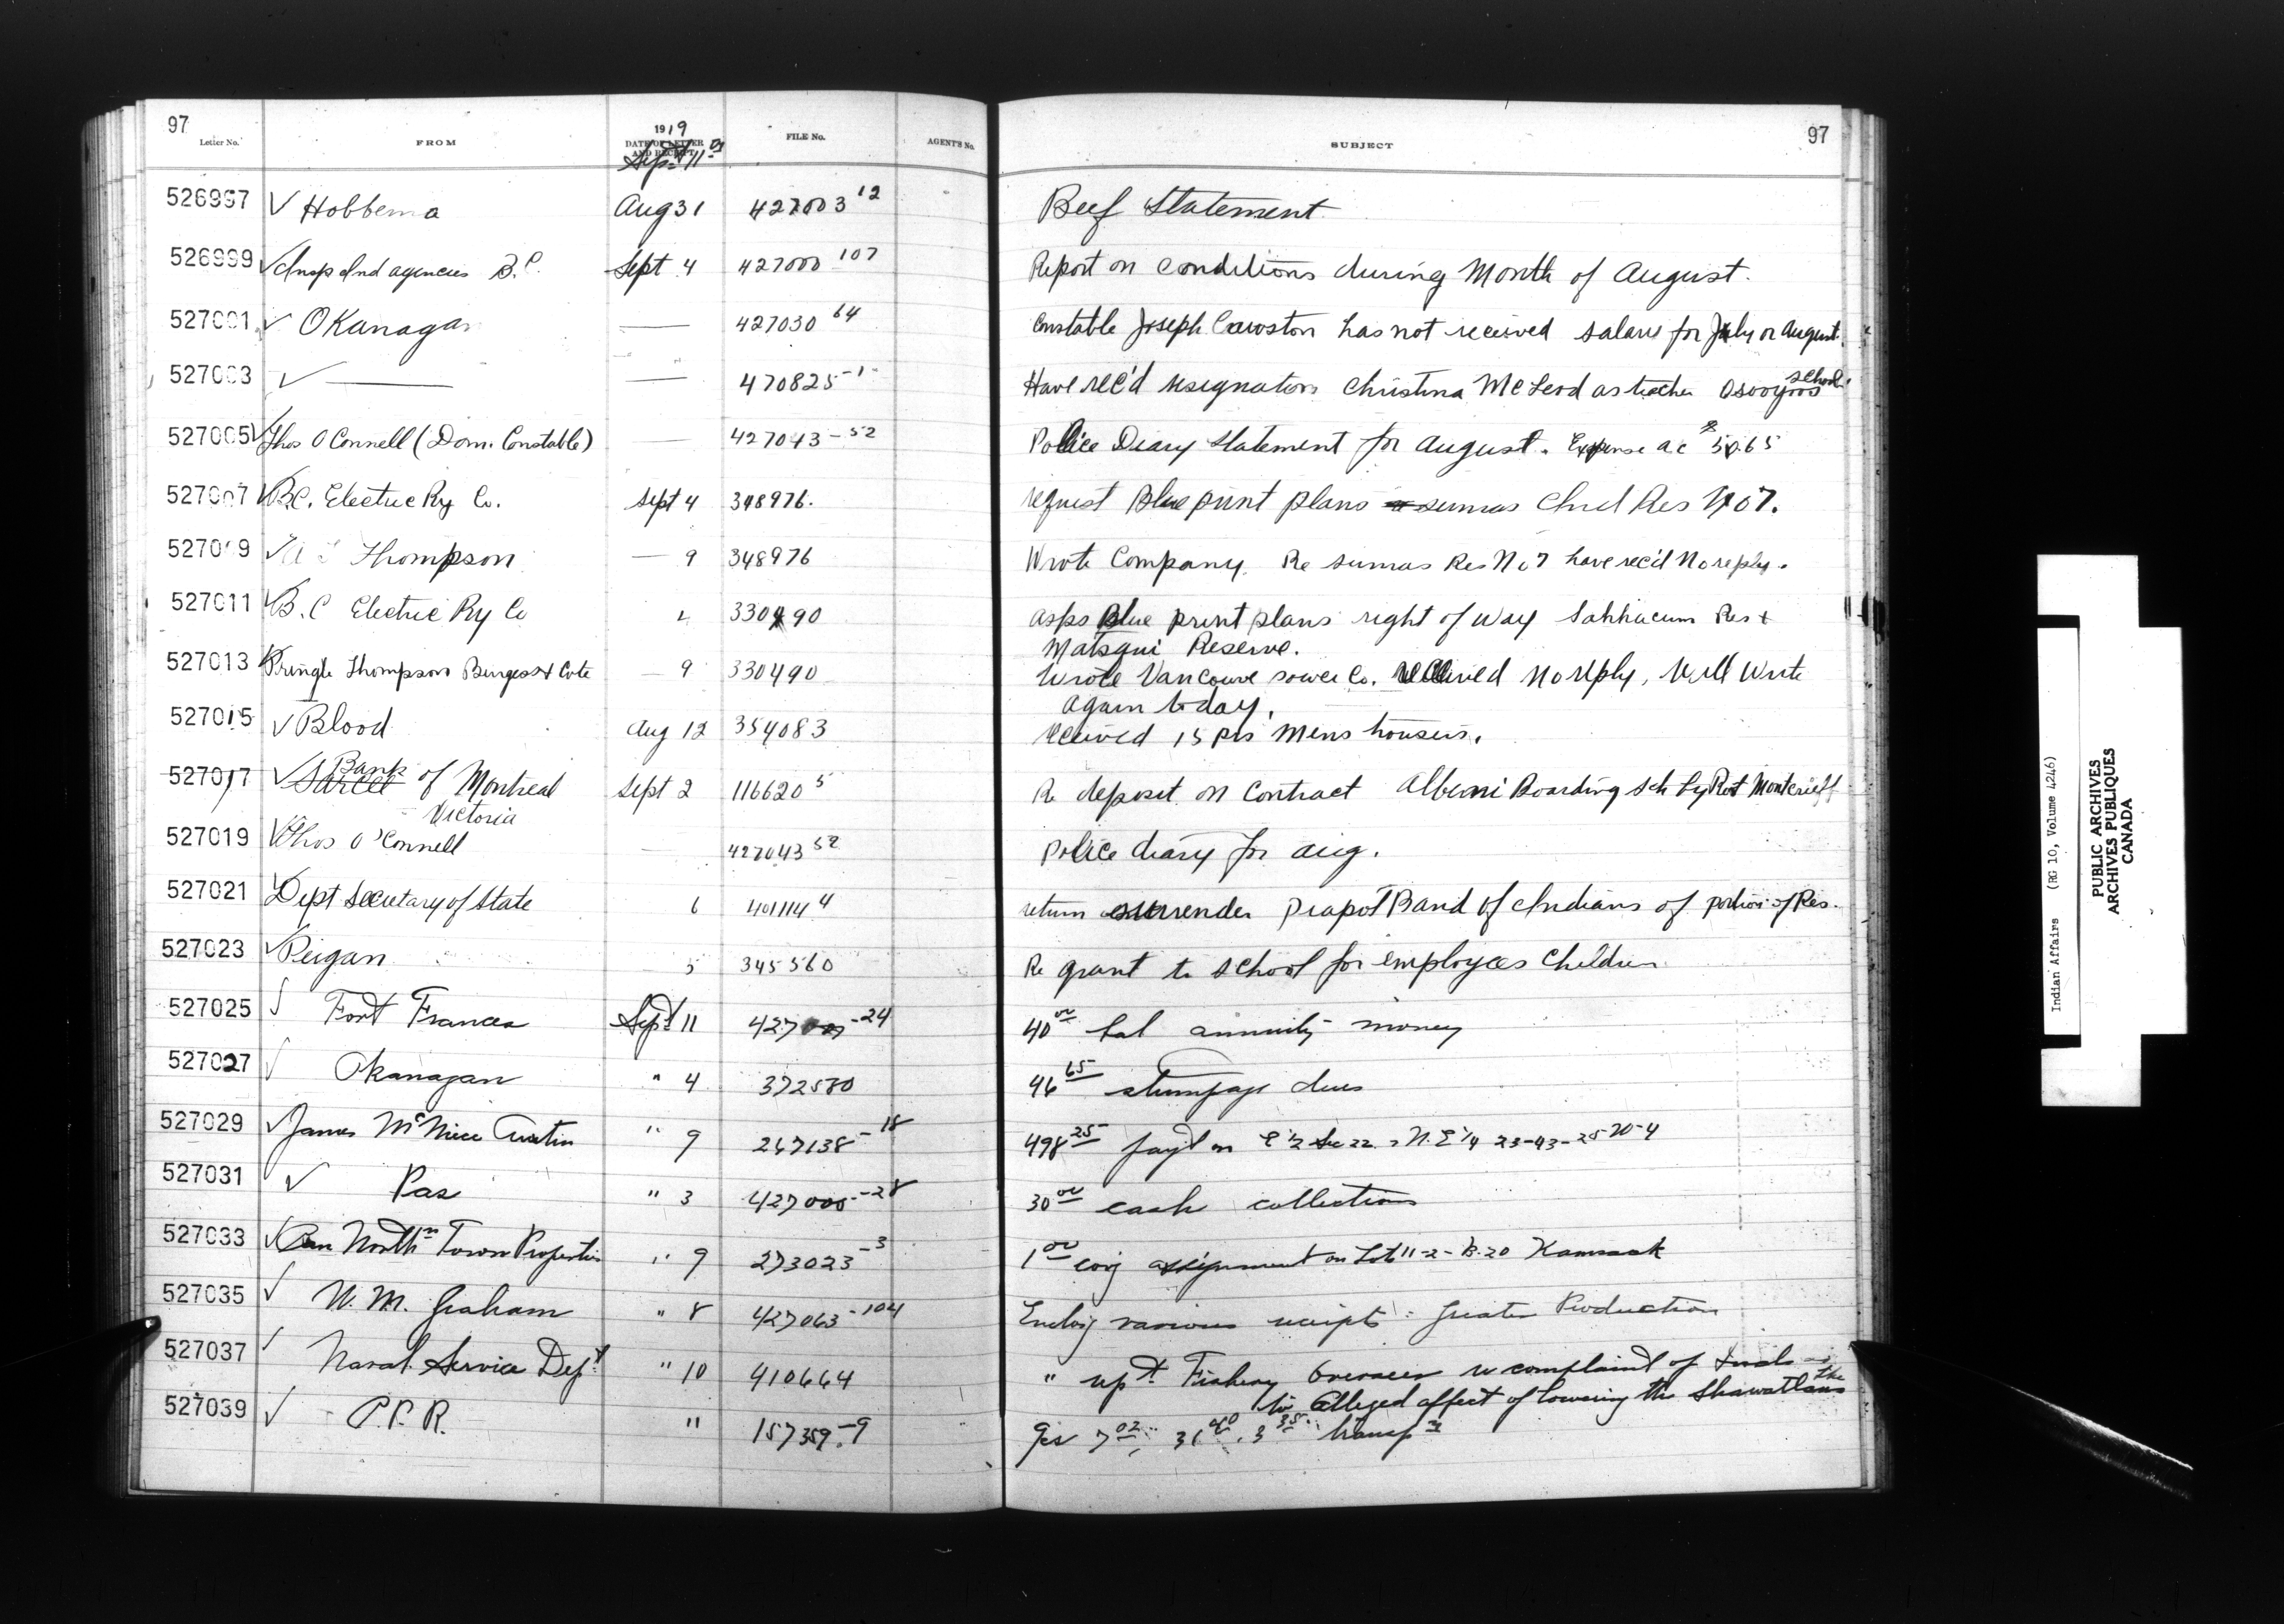 97 97
Letter No. FROM 1919 DATE OF LETTER AND RECEIPT FILE No. AGENT'S No. SUBJECT
Sept 11
526997 ✓ Hobbema Aug 31 427003 12 Beef Statement
526999 ✓ Insp Ind agencies B.C. Sept 4 427000 107 Report on conditions during Month of August.
527001 ✓ OKanagan — 427030 64 Constable Joseph Cawston has not received salary for July or August.
527003 ✓ — — 470825-1 Have rec'd resignation Christina McLeod as teacher Osooyoos School.
527005 ✓ Thos O Connell (Dom. Constable) — 427043-52 Police Diary Statement for August. Expense a c $50.65
527007 ✓ B.C. Electric Ry Co. Sept 4 348976. request Blue print plans sumas Ind Res No 7.
527009 ✓ Thompson — 9 348976 Wrote Company. Re sumas Res No 7 have rec'd No reply.
527011 ✓ B.C Electric Ry Co 330490 asks Blue print plans right of way Sahhacum Res +
Matsqui Reserve.
527013 ✓ Pringle Thompson Burgess + Cote — 9 330490 Wrote Vancouve power Co. received No reply, Will Write
again today.
527015 ✓ Blood Aug 12 354083 received 15 prs mens trousers.
527017 ✓ Sarcee Bank of Montreal Sept 2 116620 5 Re deposit on Contract Alberni Boarding Sch by Robt Montcrieff
Victoria
527019 ✓ Thos O'Connell — 427043 52 police diary for aug.
527021 ✓ Dept Secretary of State 6 401114 4 return surrender Piapot Band of Indians of portion of Res.
527023 ✓ Peigan 5 345560 Re grant to school for employees Children
527025 ✓ Fort Frances Sept 11 427009-24 40 00 bal annuity money
527027 ✓ Okanagan " 4 372580 46 65 stumpage dues
527029 ✓ James McNiece Austin " 9 267138-18 498 25 payt on E ½ Sec 22 N.E ¼ 23-43-25 W-4
527031 ✓ Pas " 3 427005-28 30 00 cash collections
527033 ✓ Can Northn Town Properties " 9 273023-3 1 00 covg assignment on Lot 11-2-B.20 Kamsack
527035 ✓ W. M. Graham " 8 427063-104 Enclosg various receipts: Greater Production
527037 ✓ Naval Service Dept " 10 410664 " rept Fishery Overseer re complaint of Inds
to Alleged affect of lowering the Shawatlans
527039 ✓ C.P.R. " 157359-9 7 02, 31 40, 3 35 transp n
Indian Affairs (RG 10, Volume 4246)
PUBLIC ARCHIVES
ARCHIVES PUBLIQUES
CANADA